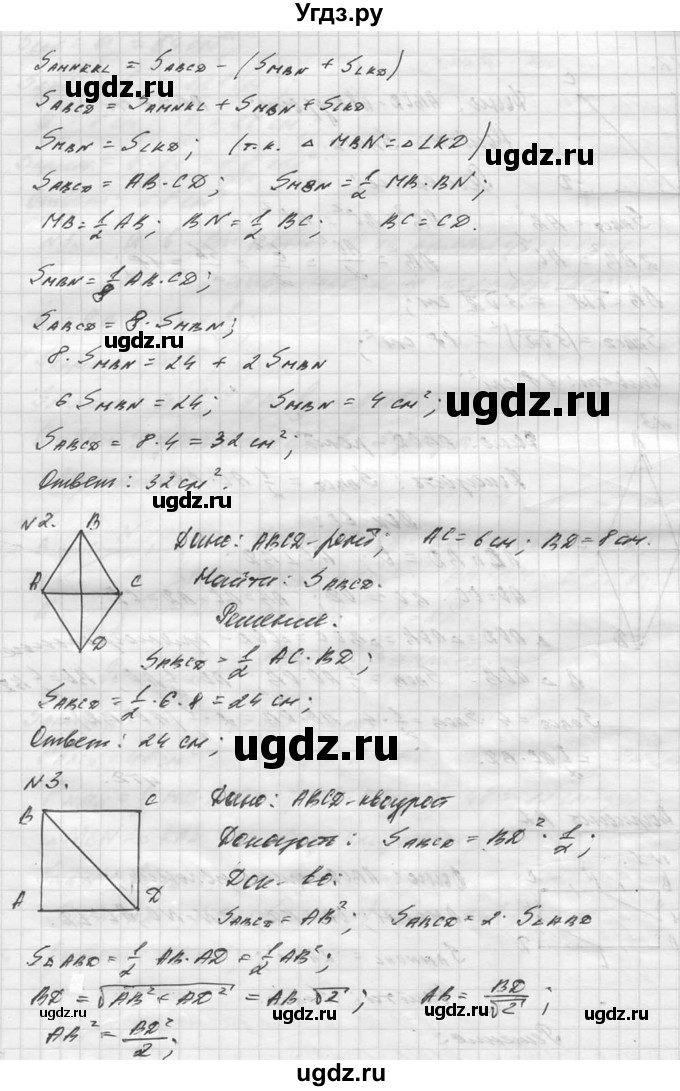 Угдз.ру
S_AMNKKL = S_ABCD − (S_MBN + S_LKD)
S_ABCD = S_AMNKL + S_MBN + S_LKD
S_MBN = S_LKD; (т.к. △ MBN = △ LKD)
S_ABCD = AB·CD; S_MBN = 1/2 MB·BN;
MB = 1/2 AB; BN = 1/2 BC; BC = CD.
S_MBN = 1/8 AB·CD;
S_ABCD = 8·S_MBN;
8·S_MBN = 24 + 2 S_MBN
6 S_MBN = 24; S_MBN = 4 см²;
S_ABCD = 8·4 = 32 см²;
Ответ: 32 см².
№2.
B
A
C
D
Дано: ABCD-ромб; AC = 6 см; BD = 8 см.
Найти: S_ABCD.
Решение:
S_ABCD = 1/2 AC·BD;
S_ABCD = 1/2·6·8 = 24 см;
Ответ: 24 см;
№3.
B
C
A
D
Дано: ABCD-квадрат
Доказать: S_ABCD = BD²·1/2;
Док-во:
S_ABCD = AB²; S_ABCD = 2·S_△ABD
S_△ABD = 1/2 AB·AD = 1/2 AB²;
BD = √(AB² + AD²) = AB √2; AB = BD/√2;
AB² = BD²/2;
ugdz.ru
ugdz.ru
ugdz.ru
ugdz.ru
ugdz.ru
ugdz.ru
ugdz.ru
ugdz.ru
ugdz.ru
ugdz.ru
ugdz.ru